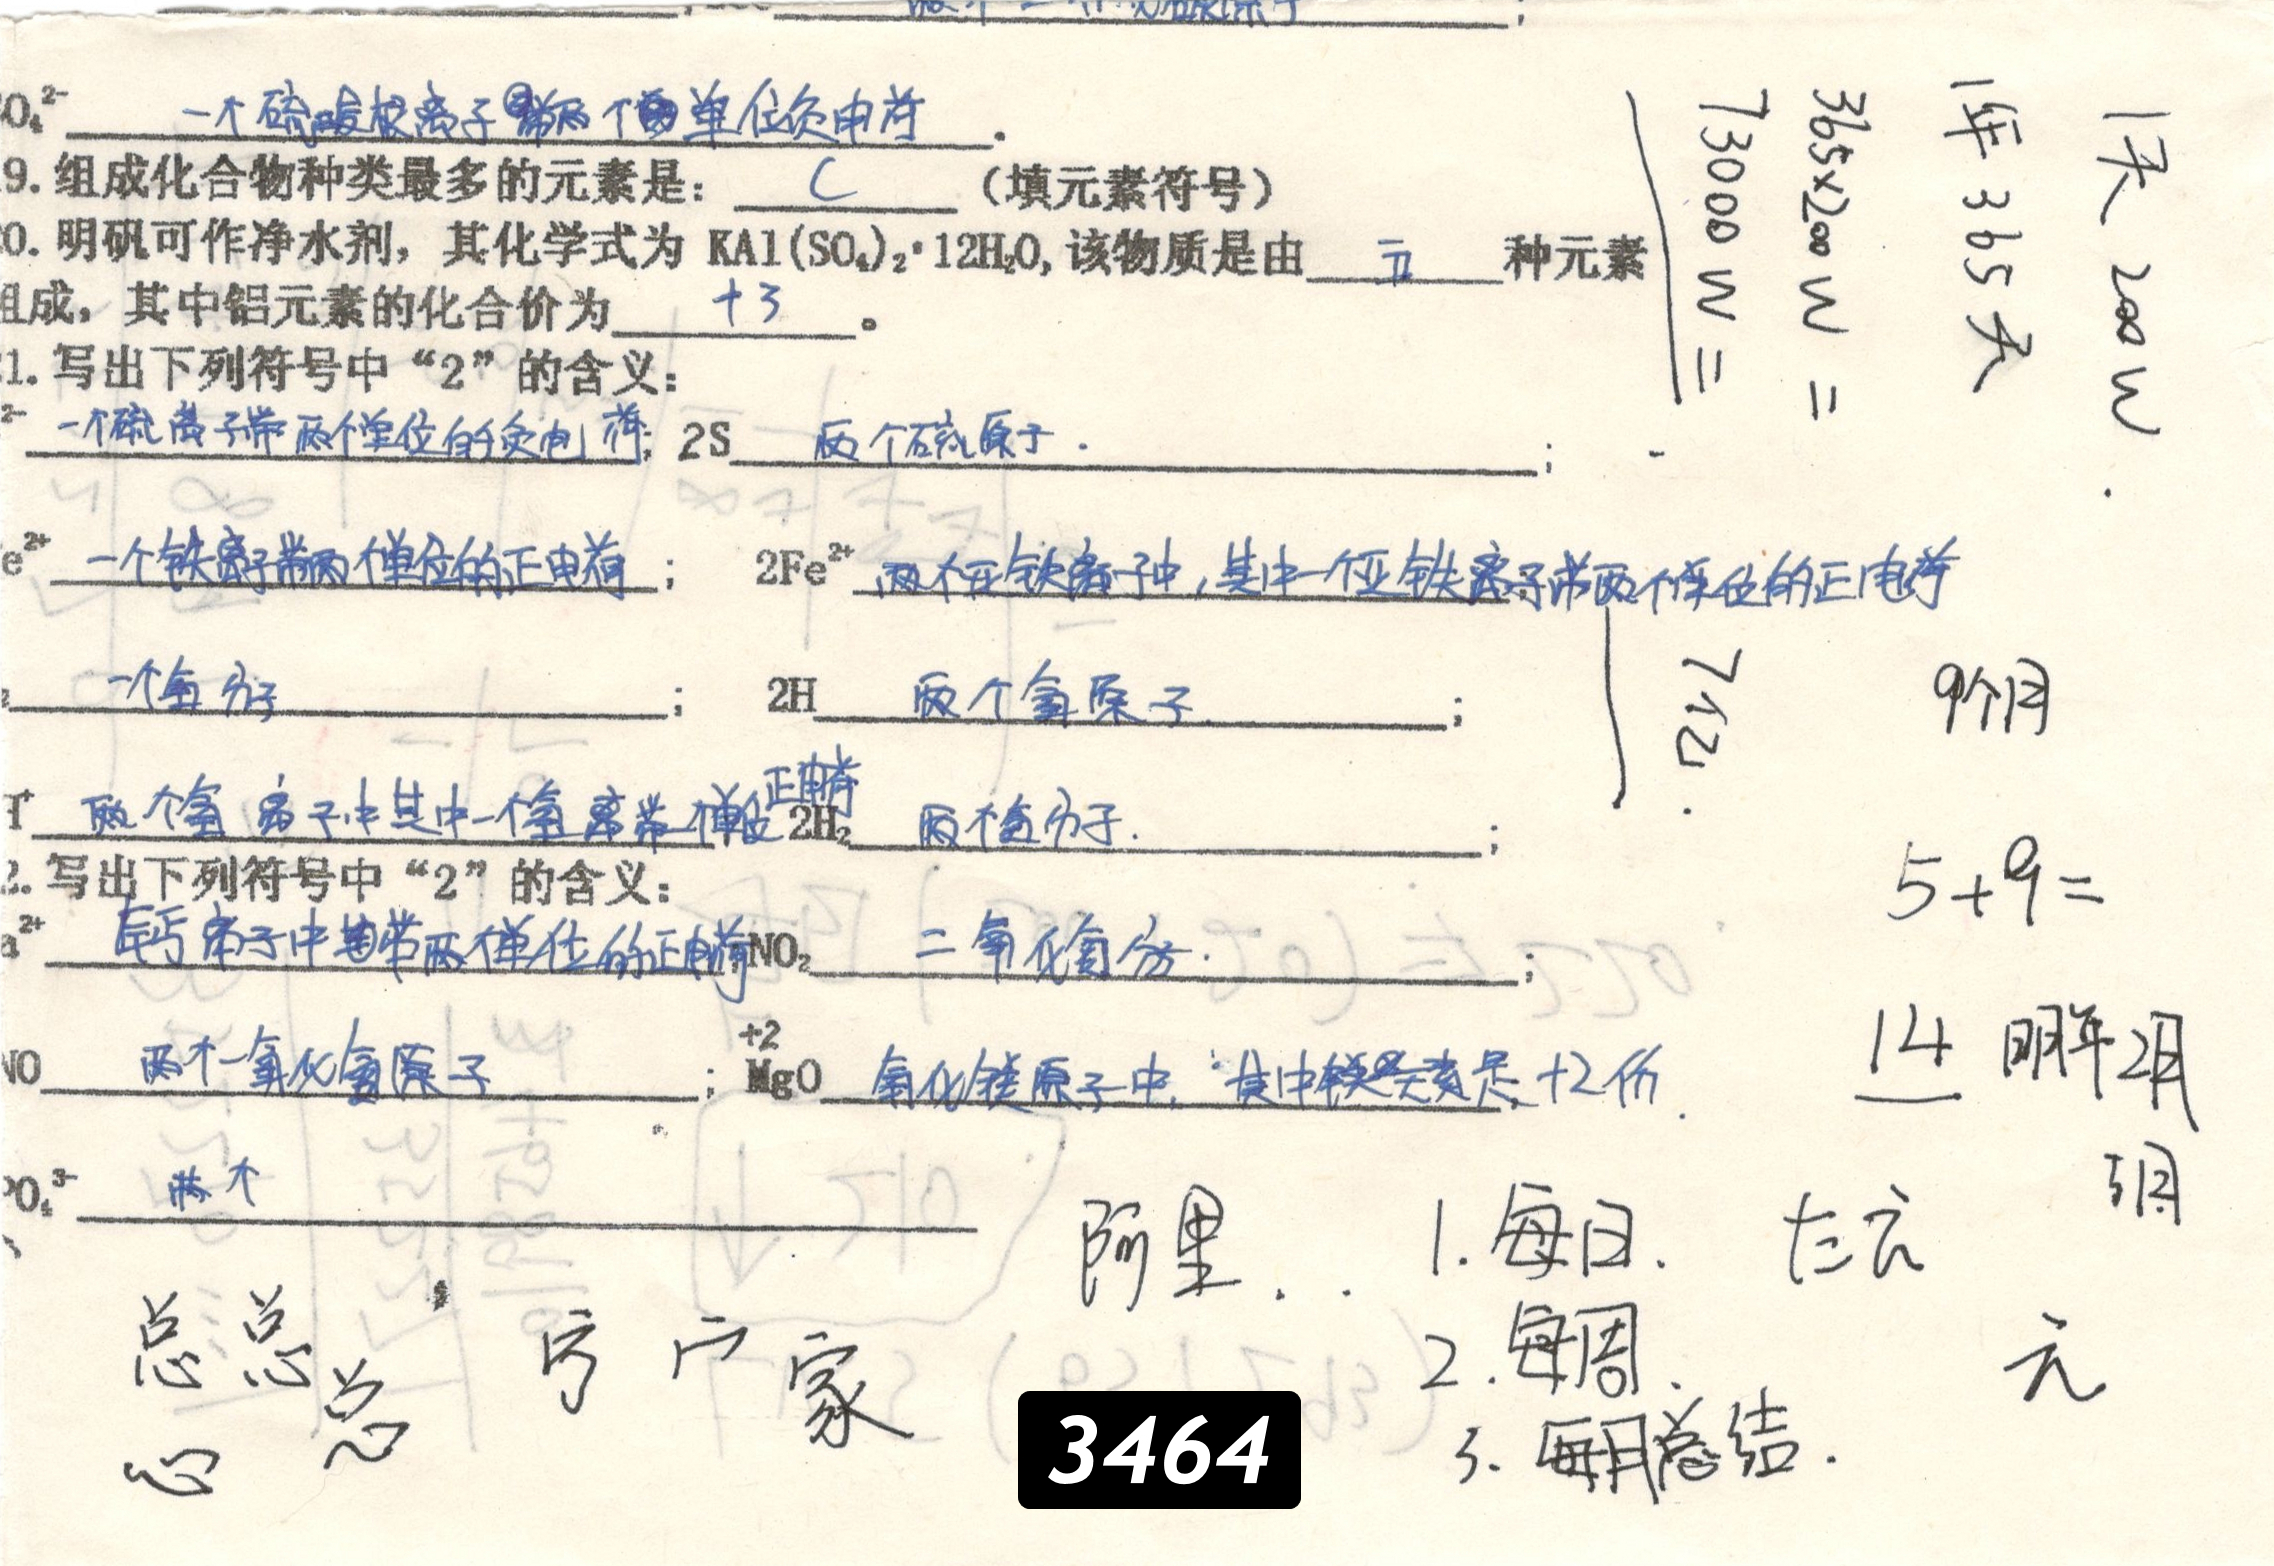 O₄²⁻ 一个硫酸根离子带两个单位负电荷。
9. 组成化合物种类最多的元素是： C （填元素符号）
0. 明矾可作净水剂，其化学式为 KAl(SO₄)₂·12H₂O, 该物质是由 五 种元素
组成，其中铝元素的化合价为 +3 。
1. 写出下列符号中“2”的含义：
²⁻ 一个硫离子带两个单位的负电荷; 2S 两个硫原子. ;
e²⁺ 一个铁离子带两个单位的正电荷 ; 2Fe²⁺ 两个亚铁离子中,其中一个亚铁离子带两个单位的正电荷
₂ 一个氢分子 ; 2H 两个氢原子 ;
H⁺ 两个氢离子中其中一个氢离带一个单位正电荷 2H₂ 两个氢分子. ;
2. 写出下列符号中“2”的含义：
a²⁺ 钙离子中其带两个单位的正电荷 NO₂ 二氧化氮分子. ;
NO 两个一氧化氮原子 ; +2 MgO 氧化镁原子中, 其中镁元素是+2价.
PO₄³⁻ 两个
1天 200W.
1年 365天
365×200W =
73000W =
7亿.
9个月
5+9=
14 明年2月
3月
阿里..
1. 每日.
2. 每周.
3. 每月总结.
元
总 总 总
心
家
3464